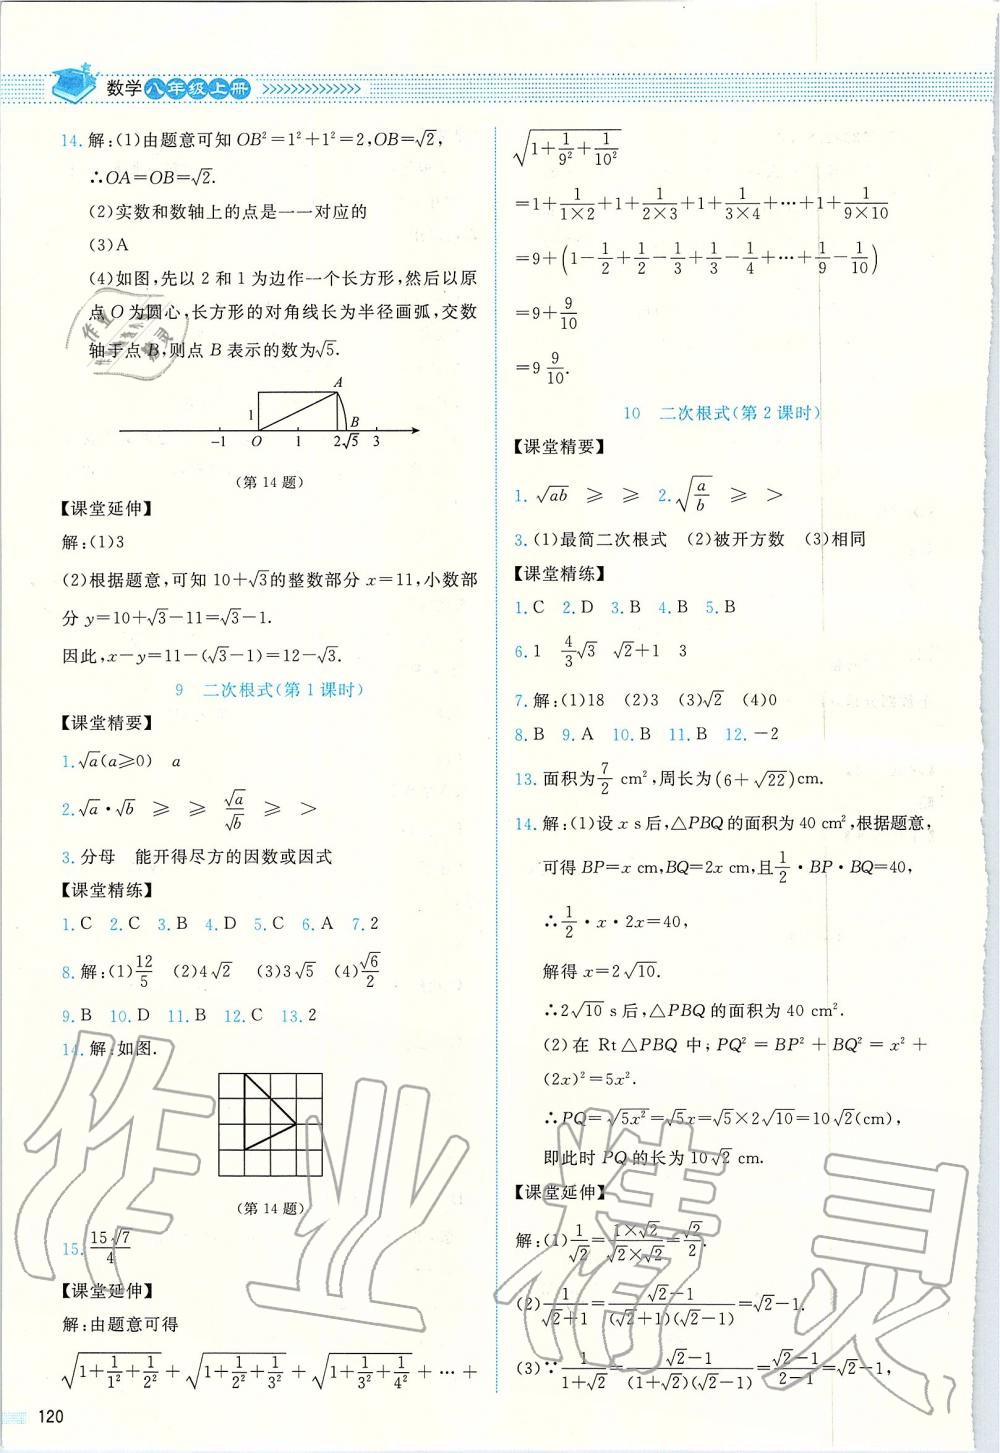 数学八年级上册
14.解:(1)由题意可知 OB²=1²+1²=2,OB=√2,
∴OA=OB=√2.
(2)实数和数轴上的点是一一对应的
(3)A
(4)如图,先以 2 和 1 为边作一个长方形,然后以原
点 O 为圆心,长方形的对角线长为半径画弧,交数
轴于点 B,则点 B 表示的数为√5.
A
1
B
-1 O 1 2 √5 3
(第 14 题)
【课堂延伸】
解:(1)3
(2)根据题意,可知 10+√3的整数部分 x=11,小数部
分 y=10+√3-11=√3-1.
因此,x-y=11-(√3-1)=12-√3.
9 二次根式(第 1 课时)
【课堂精要】
1.√a(a≥0) a
2.√a·√b ≥ ≥ √a/√b ≥ >
3.分母 能开得尽方的因数或因式
【课堂精练】
1.C 2.C 3.B 4.D 5.C 6.A 7.2
8.解:(1)12/5 (2)4√2 (3)3√5 (4)√6/2
9.B 10.D 11.B 12.C 13.2
14.解:如图.
(第 14 题)
15.15√7/4
【课堂延伸】
解:由题意可得
√(1+1/1²+1/2²)+√(1+1/2²+1/3²)+√(1+1/3²+1/4²)+…+
√(1+1/9²+1/10²)
=1+1/(1×2)+1+1/(2×3)+1+1/(3×4)+…+1+1/(9×10)
=9+(1-1/2+1/2-1/3+1/3-1/4+…+1/9-1/10)
=9+9/10
=9 9/10.
10 二次根式(第 2 课时)
【课堂精要】
1.√ab ≥ ≥ 2.√(a/b) ≥ >
3.(1)最简二次根式 (2)被开方数 (3)相同
【课堂精练】
1.C 2.D 3.B 4.B 5.B
6.1 4/3√3 √2+1 3
7.解:(1)18 (2)3 (3)√2 (4)0
8.B 9.A 10.B 11.B 12.-2
13.面积为7/2 cm²,周长为(6+√22)cm.
14.解:(1)设 x s后,△PBQ 的面积为 40 cm²,根据题意,
可得 BP=x cm,BQ=2x cm,且1/2·BP·BQ=40,
∴1/2·x·2x=40,
解得 x=2√10.
∴2√10 s后,△PBQ 的面积为 40 cm².
(2)在 Rt△PBQ 中,PQ²=BP²+BQ²=x²+
(2x)²=5x².
∴PQ=√5x²=√5x=√5×2√10=10√2(cm),
即此时 PQ 的长为 10√2 cm.
【课堂延伸】
解:(1)1/√2=(1×√2)/(√2×√2)=√2/2.
(2)1/(√2+1)=(√2-1)/((√2+1)(√2-1))=√2-1.
(3)∵1/(1+√2)=(√2-1)/((1+√2)(√2-1))=(√2-1)/(2-1)=√2-1,
120
作业精灵
作业
精灵